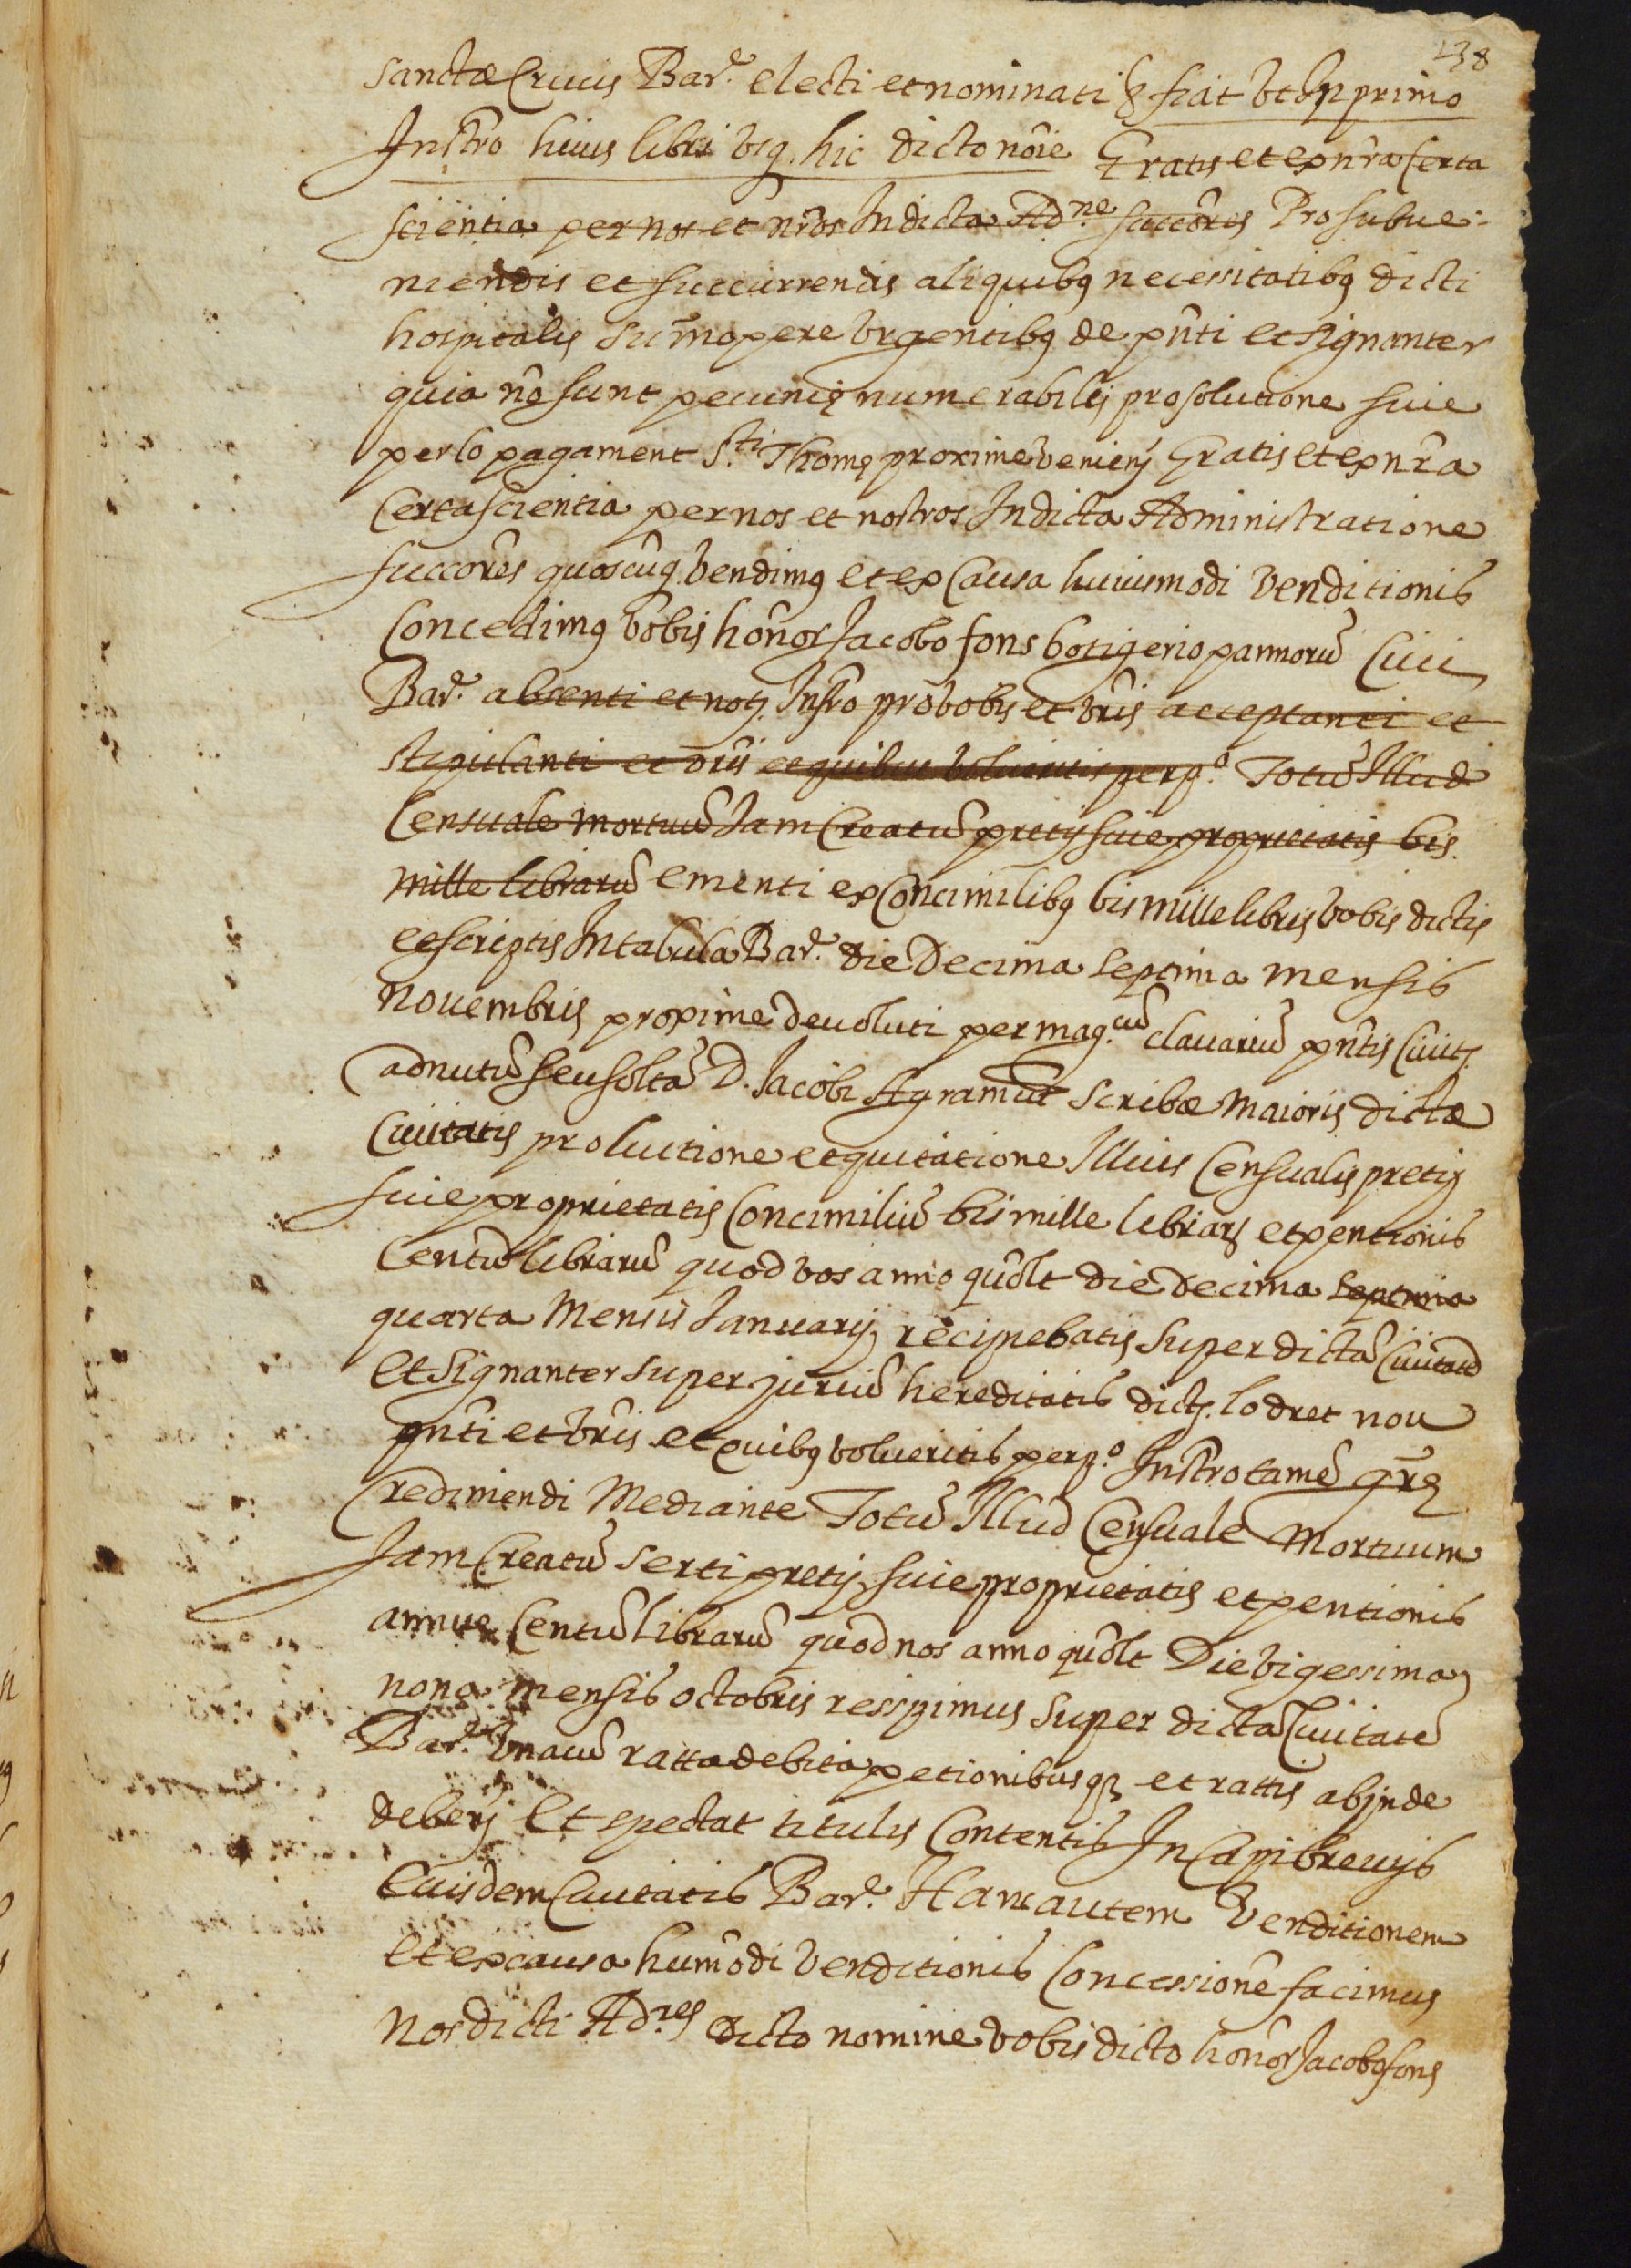 138
sanctæ Crucis Bar.e electi et nominati & fiat ut in primo
Instro huius libri usq. hic dicto noie Gratis et ex nra Certa
scientia per nos et nros In dicta Ad.ne succores Pro subue-
niendis et succurrendis aliquibq necessitatibq dicti
hospitalis sumopere urgentibq de pnti et signanter
quia no sunt pecunię numerabiles pro solutione fiuie
per lo pagament S.ti Thomę proxime venienj Gratis et ex nra
Certa scientia per nos et nostros In dicta Administratione
succores quoscuq. vendimq et ex Causa huiusmodi venditionis
Concedimq vobis honor Jacobo fons botigerio pannoru Ciui
Bar.e absenti et notj. Infro pro vobis et vris acceptanti et
stipulanti et vris et quibus volueritis perp.o Totu Illud
Censuale mortuu Iam Creatu pretij suie proprietatis bis
mille libraru ementi ex Concimilibq bis mille libris vobis dictis
et scriptis In tabula Bar.e die Decima septima mensis
Nouembris proxime deuoluti per mag.cu clauariu pntis Ciuitj.
ad nutu seu solta D. Jacobi Agramut scribæ maioris dictæ
Ciuitatis pro luitione et quitatione Illius Censualis pretij
suie proprietatis Concimiliu bis mille librarj et pentionis
Centu libraru quod vos anno quolt die decima septima
quarta Mensis Januarij recipiebatis super dicta Ciuitate
Et signanter super juriu hereditatis dictj. lo dret nou
pnti et vris et quibq volueritis perp.o Instro tame gre
redimendi Mediante Totu Illud Censuale Mortuum
Iam Creatu serti pretij suie proprietatis et pentionis
annue Centu libraru quod nos anno quolt Die vigessima
nona mensis octobris ressipimus super dicta Ciuitate
Bar.e Vnacu ratta debita petionibusq et rattis ab inde
debenj Et spectat titulis Contentis In Capibreuijs
Euisdem Ciuitatis Bar.e Hanc autem Venditionem
Et ex causa humodi Venditionis Concessione facimus
Nos dicti Ad.res dicto nomine vobis dicto honor Jacobo fons